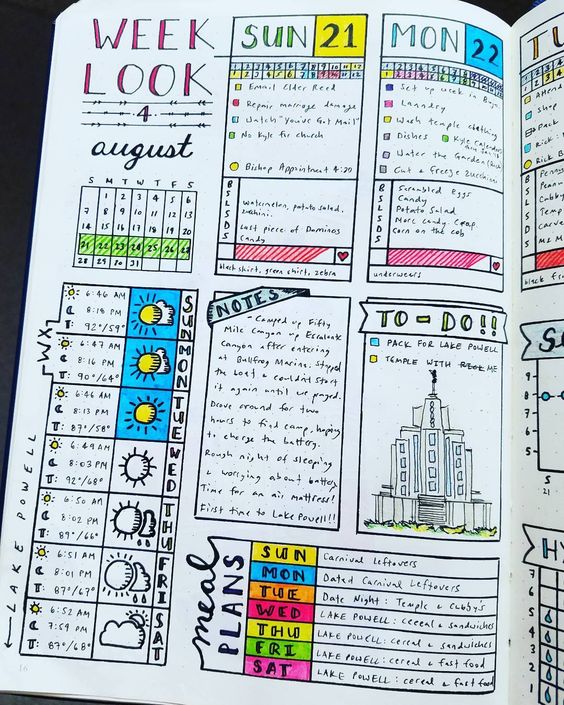 WEEK
LOOK
4
august
S M T W T F S
1 2 3 4 5 6
7 8 9 10 11 12 13
14 15 16 17 18 19 20
21 22 23 24 25 26 27
28 29 30 31
SUN 21
Email Elder Reed
Repair marriage damage
Watch "You've Got Mail"
No Kyle for church
Bishop Appointment 4:20
B
S
L
S
D
S
watermelon, potato salad,
zucchini.
Last piece of Dominos
Candy
black shirt, green shirt, zebra
MON 22
Set up week in Bujo
Laundry
Wash temple clothing
Dishes
Kyle Calendars
Water the Garden
Cut & freeze zucchini
B
S
L
S
D
S
Scrambled Eggs
Candy
Potato Salad
More candy. Crap.
Corn on the cob
underweers
TU
Attend
Shop
Pack
Rick
Rick B
Penny
Peanu
Cubby
Temp
Carve
black fr
WX
LAKE POWELL
6:46 AM
8:18 PM
T: 92°/59°
SUN
6:47 AM
8:16 PM
T: 90°/64°
MON
6:46 AM
8:13 PM
T: 87°/58°
TUE
6:49 AM
8:03 PM
T: 92°/68°
WED
6:50 AM
8:02 PM
T: 89°/66°
THU
6:51 AM
8:01 PM
T: 86°/66°
FRI
6:52 AM
7:59 PM
T: 87°/68°
SAT
NOTES
- Camped up Fifty
Mile Canyon up Escalante
Canyon after entering
at Bullfrog Marina. Stopped
the boat & couldn't start
it again until we prayed.
Drove around for two
hours to find camp, hoping
to charge the battery.
Rough night of sleeping
& worrying about battery
Time for an air mattress!
First time to Lake Powell!!
TO-DO!!
PACK FOR LAKE POWELL
TEMPLE WITH RICK ME
meal
PLANS
SUN Carnival Leftovers
MON Dated Carnival Leftovers
TUE Date Night: Temple & Cubby's
WED LAKE POWELL: cereal & sandwiches
THU LAKE POWELL: cereal & sandwiches
FRI LAKE POWELL: cereal & fast food
SAT LAKE POWELL: cereal & fast food
S
9
8
7
6
5
S
21
HY
7
6
5
4
3
2
1